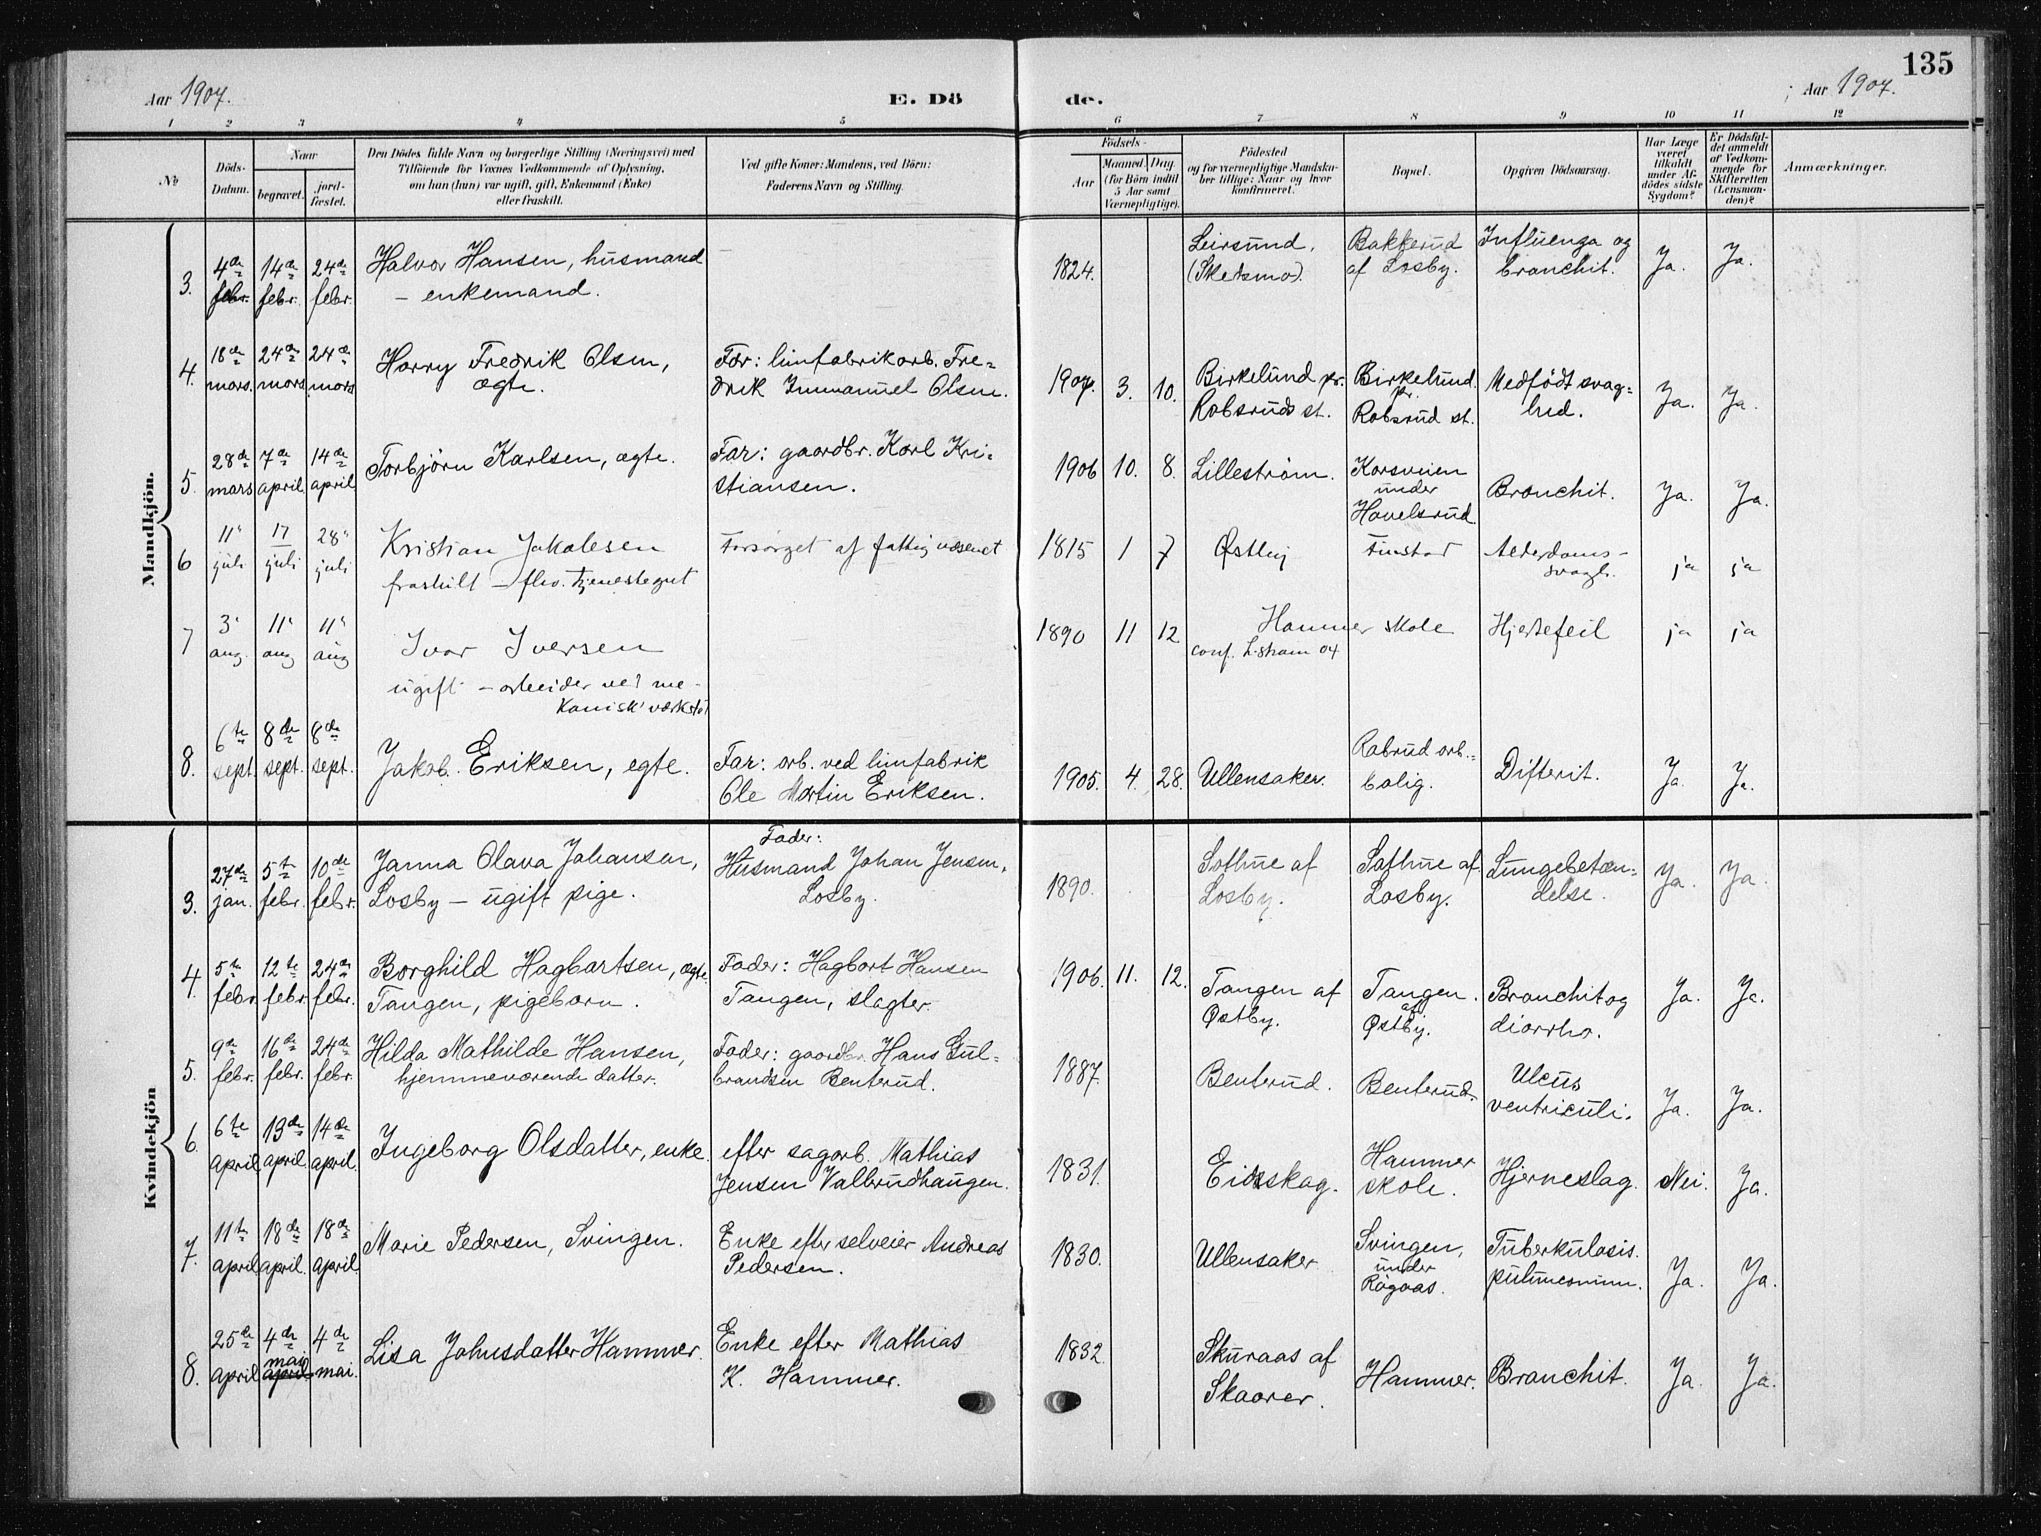 135
Aar 1907.
E. Dö
de.
Aar 1907.
1 2 3 4 5 6 7 8 9 10 11 12
No
Döds-
Datum.
Naar
begravet.
jord-
fæstet.
Den Dödes fulde Navn og borgerlige Stilling (Næringsvei) med
Tilföiende for Voxnes Vedkommende af Oplysning,
om han (hun) var ugift, gift, Enkemand (Enke)
eller fraskilt.
Ved gifte Koner: Mandens, ved Börn:
Faderens Navn og Stilling.
Födsels-
Aar
Maaned. Dag.
(for Börn indtil
5 Aar samt
Værnepligtige).
Födested
og for værnepligtige Mandska-
ber tillige: Naar og hvor
konfirmeret.
Bopæl.
Opgiven Dödsaarsag.
Har Læge
været
tilkaldt
under Af-
dödes sidste
Sygdom?
Er Dödsfal-
det anmeldt
af Vedkom-
mende for
Skifteretten
(Lensman-
den)?
Anmærkninger.
Mandkjön.
3. 4de febr. 14de febr. 24de febr.
Halvor Hansen, husmand
- enkemand.
1824.
Leirsund.
(Skedsmo).
Bakkerud
af Losby.
Influenza og
bronchit.
Ja. Ja.
4. 18de mars. 24de mars 24de mars
Harry Fredrik Olsen,
ægte.
Far: limfabrikarb. Fre-
drik Immanuel Olsen.
1907. 3. 10.
Birkelund pr.
Robsruds st.
Birkelund
pr.
Robsrud st.
Medfödt svag-
hed.
Ja. Ja.
5. 28de mars 7de april 14de april
Torbjörn Karlsen, ægte.
Far: gaardbr. Karl Kri-
stiansen.
1906 10. 8.
Lilleström.
Korsveien
under
Havelsrud.
Bronchit.
Ja. Ja.
6 11' juli 17 juli 28' juli
Kristian Jakobsen
fraskilt - flv. tjenestegut
Forsørget af fattigvæsenet
1815 1 7
Østby
Finstad
Alderdoms-
svagh.
ja ja
7 3' aug. 11' aug 11' aug
Ivar Iversen
ugift - arbeider ved me-
kanisk værksted
1890 11 12
Hammer skole
conf. L-strøm 04
Hjertefeil
ja ja
8. 6te sept. 8de sept. 8de sept.
Jakob Eriksen, egte.
Far: arb. ved limfabrik
Ole Martin Eriksen.
1905. 4. 28.
Ullensaker.
Robrud arb.-
bolig.
Difterit.
Ja. Ja.
Kvindekjön
3. 27de jan. 5te febr. 10de febr.
Janna Olava Johansen,
Losby - ugift pige.
Fader:
Husmand Johan Jensen,
Losby.
1890.
Sothue af
Losby.
Sothue af
Losby.
Lungebetæn-
delse.
Ja. Ja.
4. 5te febr. 12te febr. 24de febr.
Borghild Hagbartsen, ægte
Tangen, pigebarn.
Fader: Hagbart Hansen
Tangen, slagter.
1906. 11. 12.
Tangen af
Østby.
Tangen
af
Østby.
Bronchit og
diarrho.
Ja. Ja.
5. 9de febr. 16de febr. 24de febr.
Hilda Mathilde Hansen,
hjemmeværende datter.
Fader: gaardbr. Hans Gul-
brandsen Benterud.
1887.
Benterud.
Benterud.
Ulcus
ventriculi.
Ja. Ja.
6. 6te april 13de april 14de april.
Ingeborg Olsdatter, enke.
efter sagarb. Mathias
Jensen Valbrudhaugen.
1831.
Eidskog.
Hammer
skole.
Hjerneslag.
Nei. Ja.
7. 11te april 18de april. 18de april.
Marie Pedersen, Svingen.
Enke efter selveier Andreas
Pedersen.
1830.
Ullensaker
Svingen,
under
Rågaas.
Tuberkulosis
pulmonum.
Ja. Ja.
8. 25de april 4de mai april 4de mai.
Lisa Johnsdatter Hammer.
Enke efter Mathias
K. Hammer.
1832.
Skuraas af
Skaarer.
Hammer.
Bronchit.
Ja. Ja.